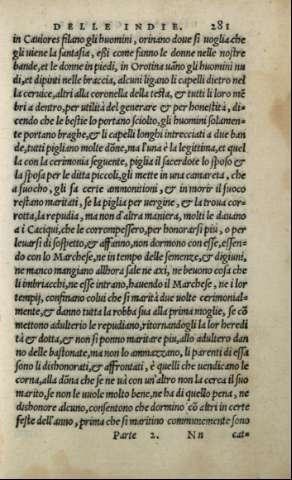 DELLE INDIE. 281
in Cauiores filano gli huomini, orinano doue si uoglia che
gli uiene la fantasia, essi come fanno le donne nelle nostre
bande, et le donne in piedi, in Orotina uãno gli huomini nu
di, et dipinti nelle braccia, alcuni ligano li capelli dietro nel
la ceruice, altri alla coronella della testa, & tutti li loro mẽ
bri a dentro, per utilità del generare & per honestità, di⸗
cendo che le bestie lo portano sciolto, gli huomini solamen⸗
te portano braghe, & li capelli longhi intrecciati a due ban
de, tutti pigliano molte dõne, ma l'una è la legittima, et quel
la con la cerimonia seguente, piglia il sacerdote lo sposo &
la sposa per le ditta piccoli, gli mette in una camareta, che
a fuocho, gli fa certe ammonitioni, & in morir il fuoco
restano maritati, se la piglia per uergine, & la troua cor⸗
rotta, la repudia, ma non d'altra maniera, molti le dauano
a i Caciqui, che le corrompessero, per honorarsi piu, o per
leuarsi di sospetto, & affanno, non dormono con esse, essen⸗
do con lo Marchese, ne in tempo delle semenze, & digiuni,
ne manco mangiano allhora sale ne axi, ne beuono cosa che
li imbriacchi, ne esse intrano, hauendo il Marchese, ne i lor
tempij, confinano colui che si marità due uolte cerimonial⸗
mente, & danno tutta la robba sua alla prima moglie, se cõ
mettono adulterio le repudiano, ritornandogli la lor heredi
tà & dotta, & non si ponno maritare piu, allo adultero dan
no delle bastonate, ma non lo ammazzano, li parenti di essa
sono li dishonorati, & affrontati, è quelli che uendicano le
corna, alla dõna che se ne uà con un'altro non la cerca il suo
marito, se non le uuole molto bene, ne ha di quello pena, ne
dishonore alcuno, consentono che dormino cõ altri in certe
feste dell'anno, prima che si maritino communemente sono
Parte 2. Nn cat⸗